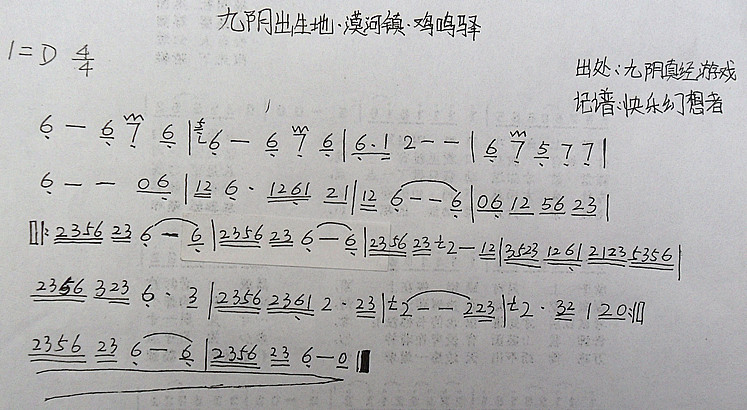 九阴出生地·漠河镇·鸡鸣驿
1=D 4/4
出处:九阴真经游戏
记谱:快乐幻想者
6 — 6 7 6 | 6 — 6 7 6 | 6·1 2 - - | 6 7 5 7 7 |
6 — — 06 | 12 6· 1261 21 | 12 6 - - 6 | 06 12 56 23 |
‖: 2356 23 6 — 6 | 2356 23 6 — 6 | 2356 23 2 — 12 | 3523 1261 2123 5356 |
2356 323 6 · 3 | 2356 2361 2 · 23 | 2 - - 223 | 2 · 32 1 20 :‖
2356 23 6 — 6 | 2356 23 6 — 0 ‖